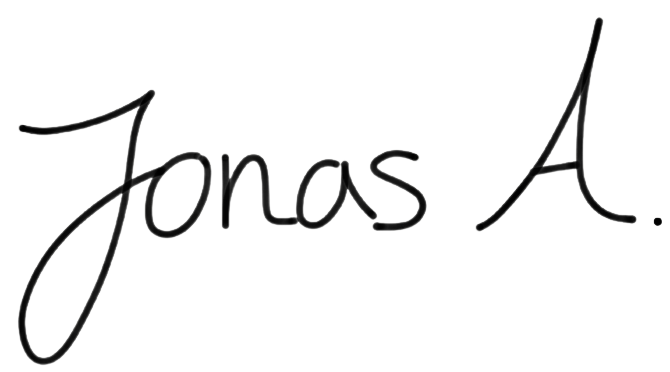 Jonas A.